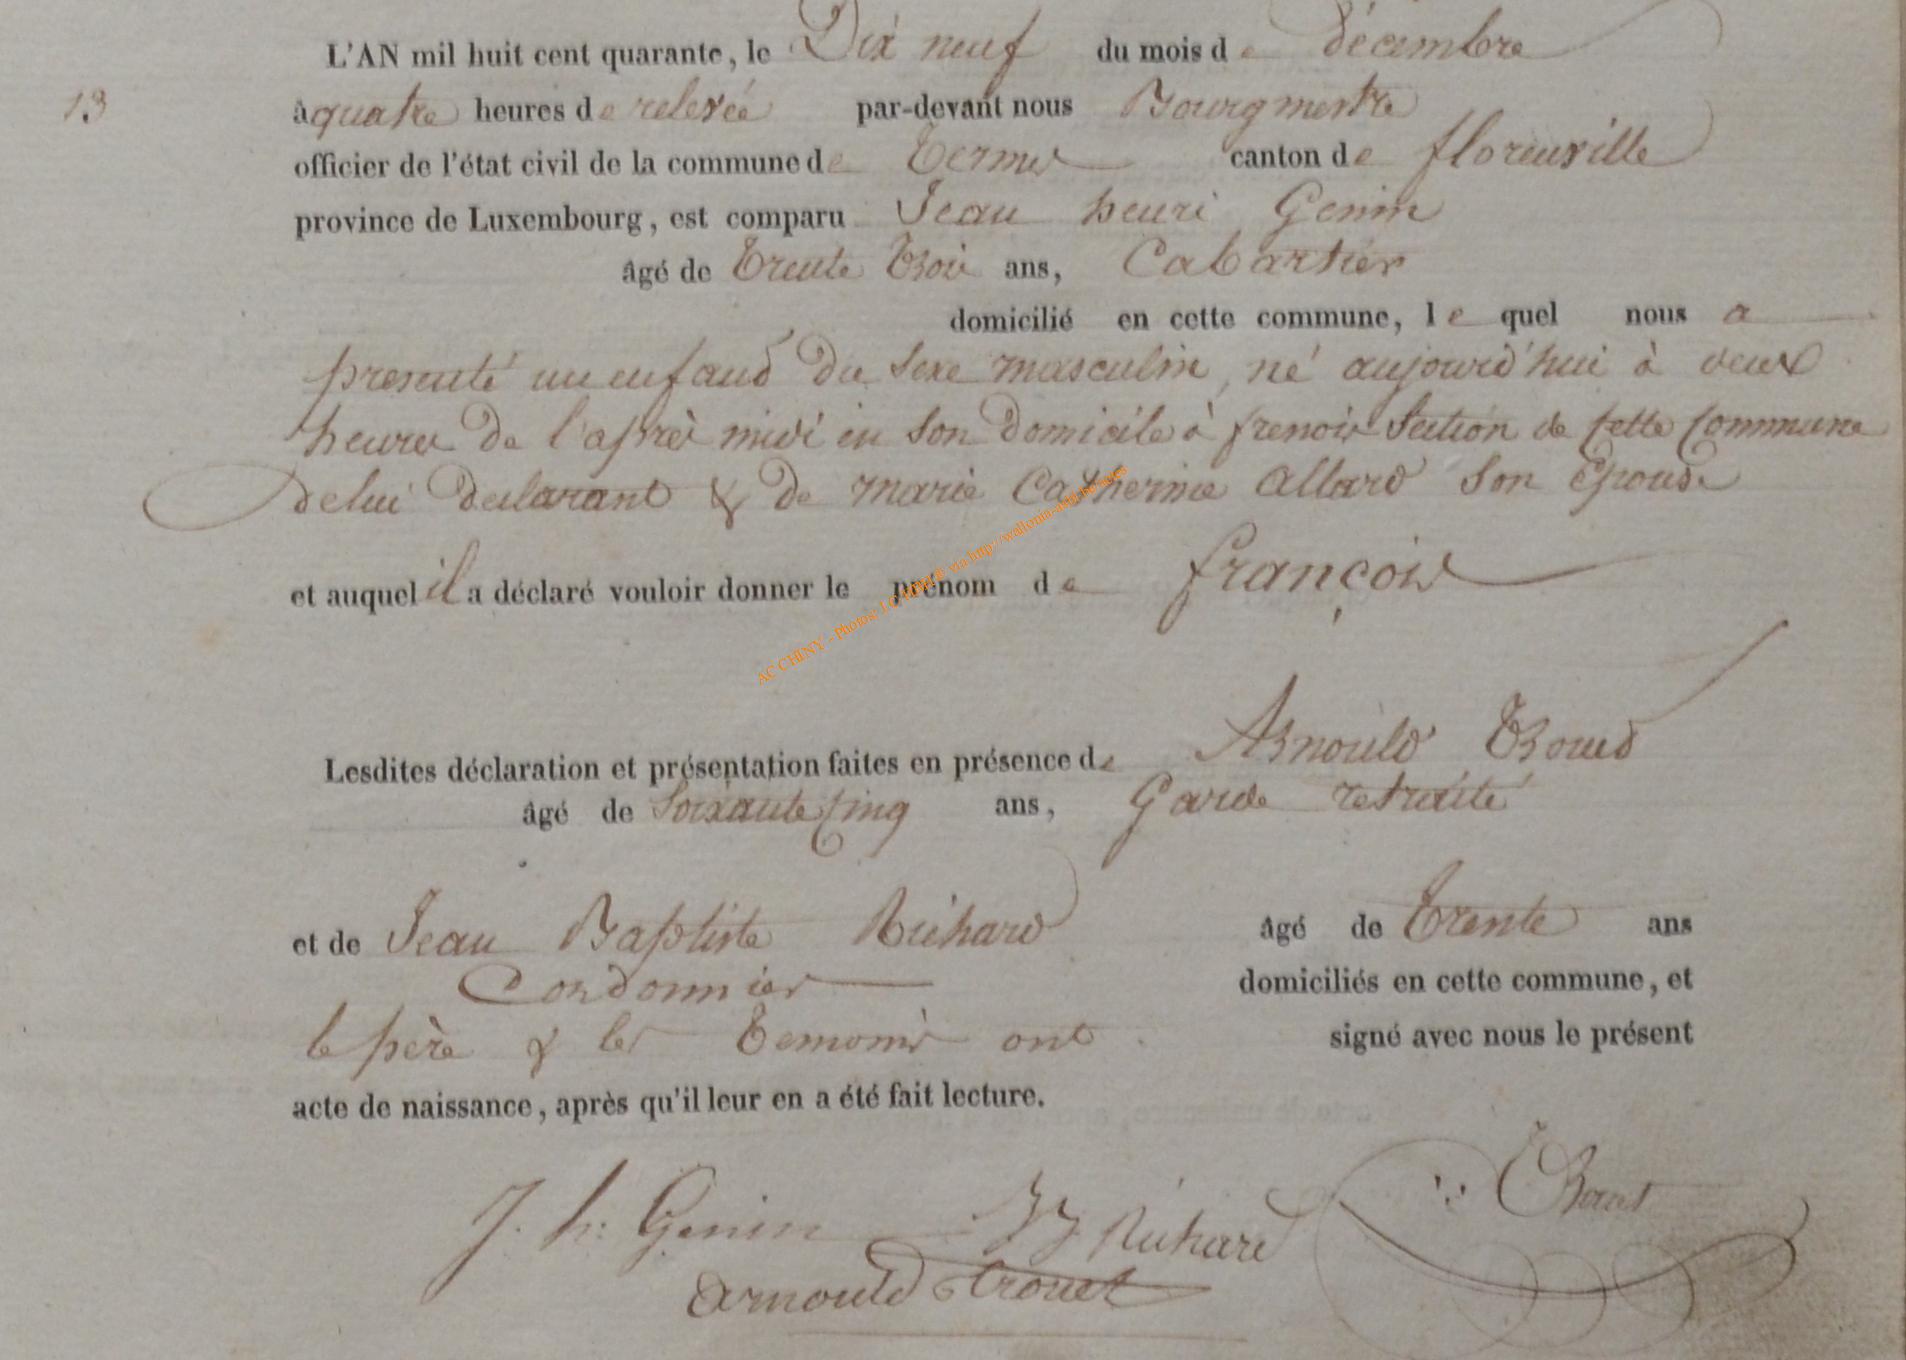 L'AN mil huit cent quarante, le Dix neuf du mois de décembre
13
à quatre heures de relevée par-devant nous Bourgmestre
officier de l'état civil de la commune de Termes canton de florenville
province de Luxembourg, est comparu Jean henri Genin
âgé de Trente Trois ans, Cabartier
domicilié en cette commune, le quel nous a
presenté un enfand du sexe masculin, né aujourd'hui à deux
heures de l'après midi en son domicile à frenois Section de cette Commune
de lui declarant & de marie Catherine allard son Epouse
et auquel il a déclaré vouloir donner le prénom de françois
AC CHINY - Photos: via http://wallonia-asbl.be/actes
Lesdites déclaration et présentation faites en présence de Arnould Troued
âgé de Soixante Cinq ans, Garde retraité
et de Jean Baptiste Richard âgé de Trente ans
Cordonnier domiciliés en cette commune, et
le père & les Temoins ont signé avec nous le présent
acte de naissance, après qu'il leur en a été fait lecture.
J. h. Genin JB Richard
arnould trouet